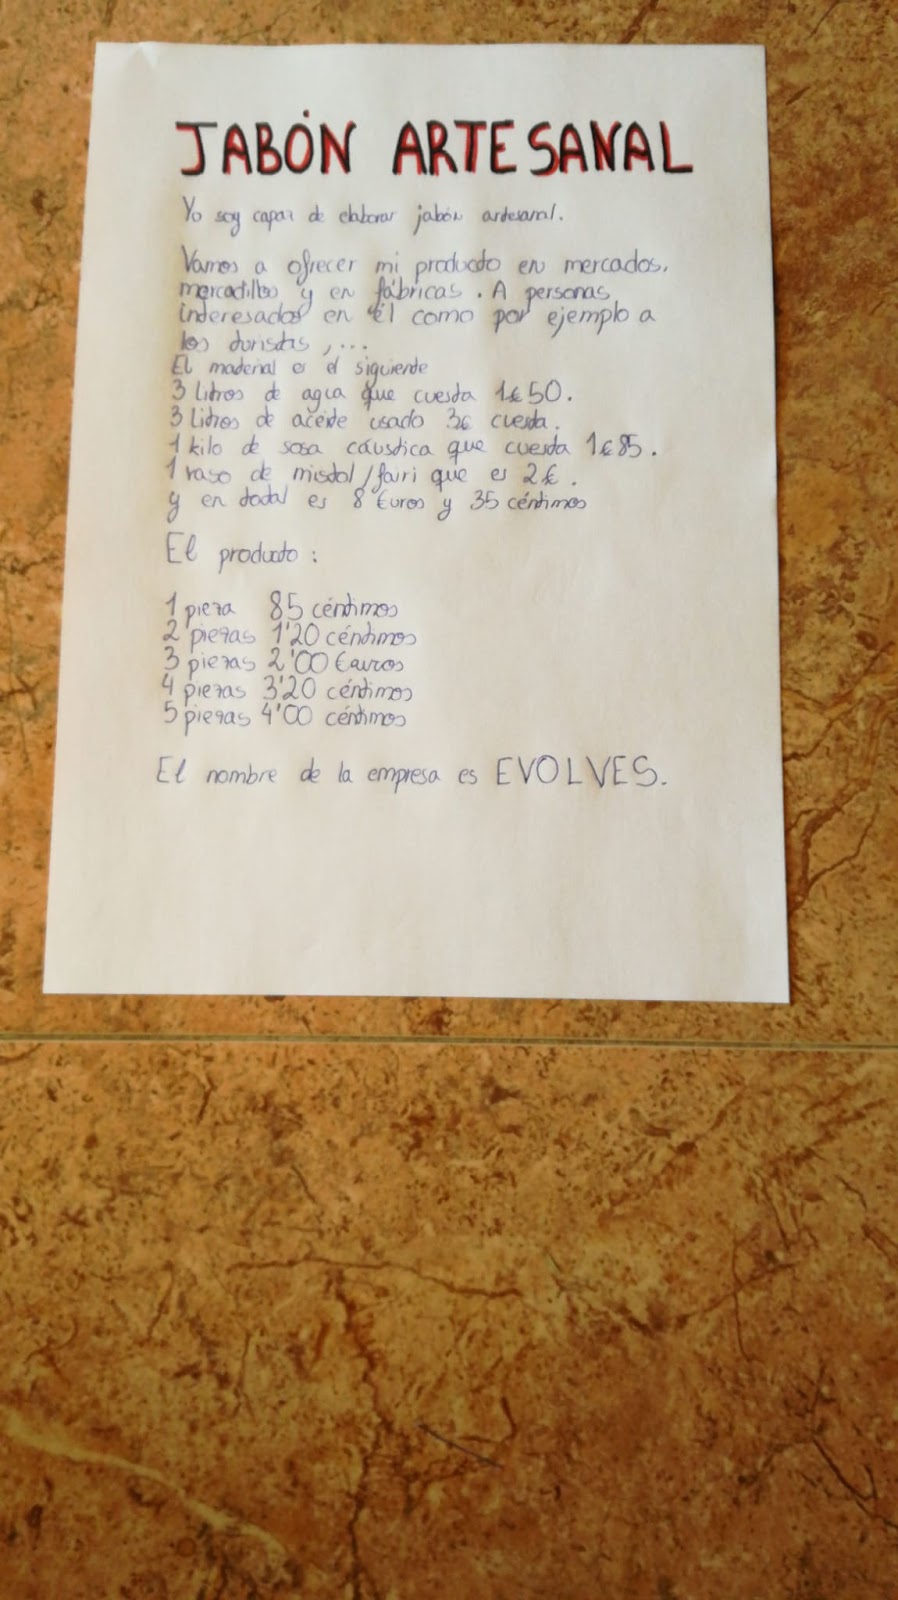 JABÓN ARTESANAL
Yo soy capaz de elaborar jabón artesanal.
Vamos a ofrecer mi producto en mercados,
mercadillos y en fábricas. A personas
interesados en él como por ejemplo a
los turistas ,...
El material es el siguiente
3 litros de agua que cuesta 1€50.
3 litros de aceite usado 3€ cuesta.
1 kilo de sosa cáustica que cuesta 1€85.
1 vaso de mistol/fairi que es 2€.
y en total es 8 Euros y 35 céntimos
El producto:
1 pieza 85 céntimos
2 piezas 1'20 céntimos
3 piezas 2'00 Euros
4 piezas 3'20 céntimos
5 piezas 4'00 céntimos
El nombre de la empresa es EVOLVES.